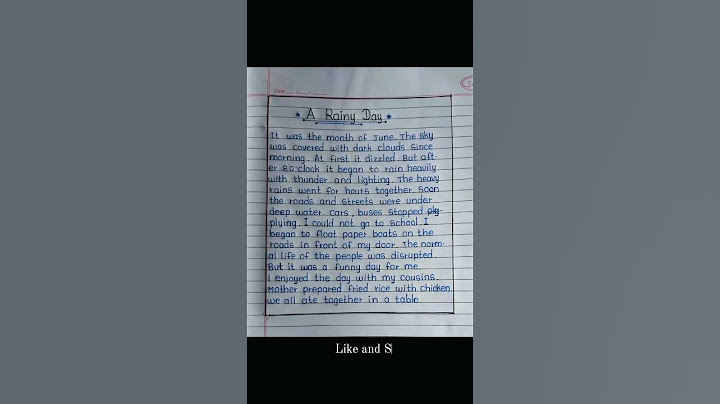 Date
A Rainy Day
It was the month of June. The sky
was covered with dark clouds since
morning. At first it dizzled. But aft-
er 8o'clock it began to rain heavily
with thunder and lighting. The heavy
rains went for hours together. Soon
the roads and streets were under
deep water cars, buses stopped ply
plying. I could not go to school. I
began to float paper boats on the
roads in front of my door. The norm-
al life of the people was disrupted.
But it was a funny day for me.
I enjoyed the day with my cousins.
Mother prepared fried rice with chicken.
we all ate together in a table.
Like and S